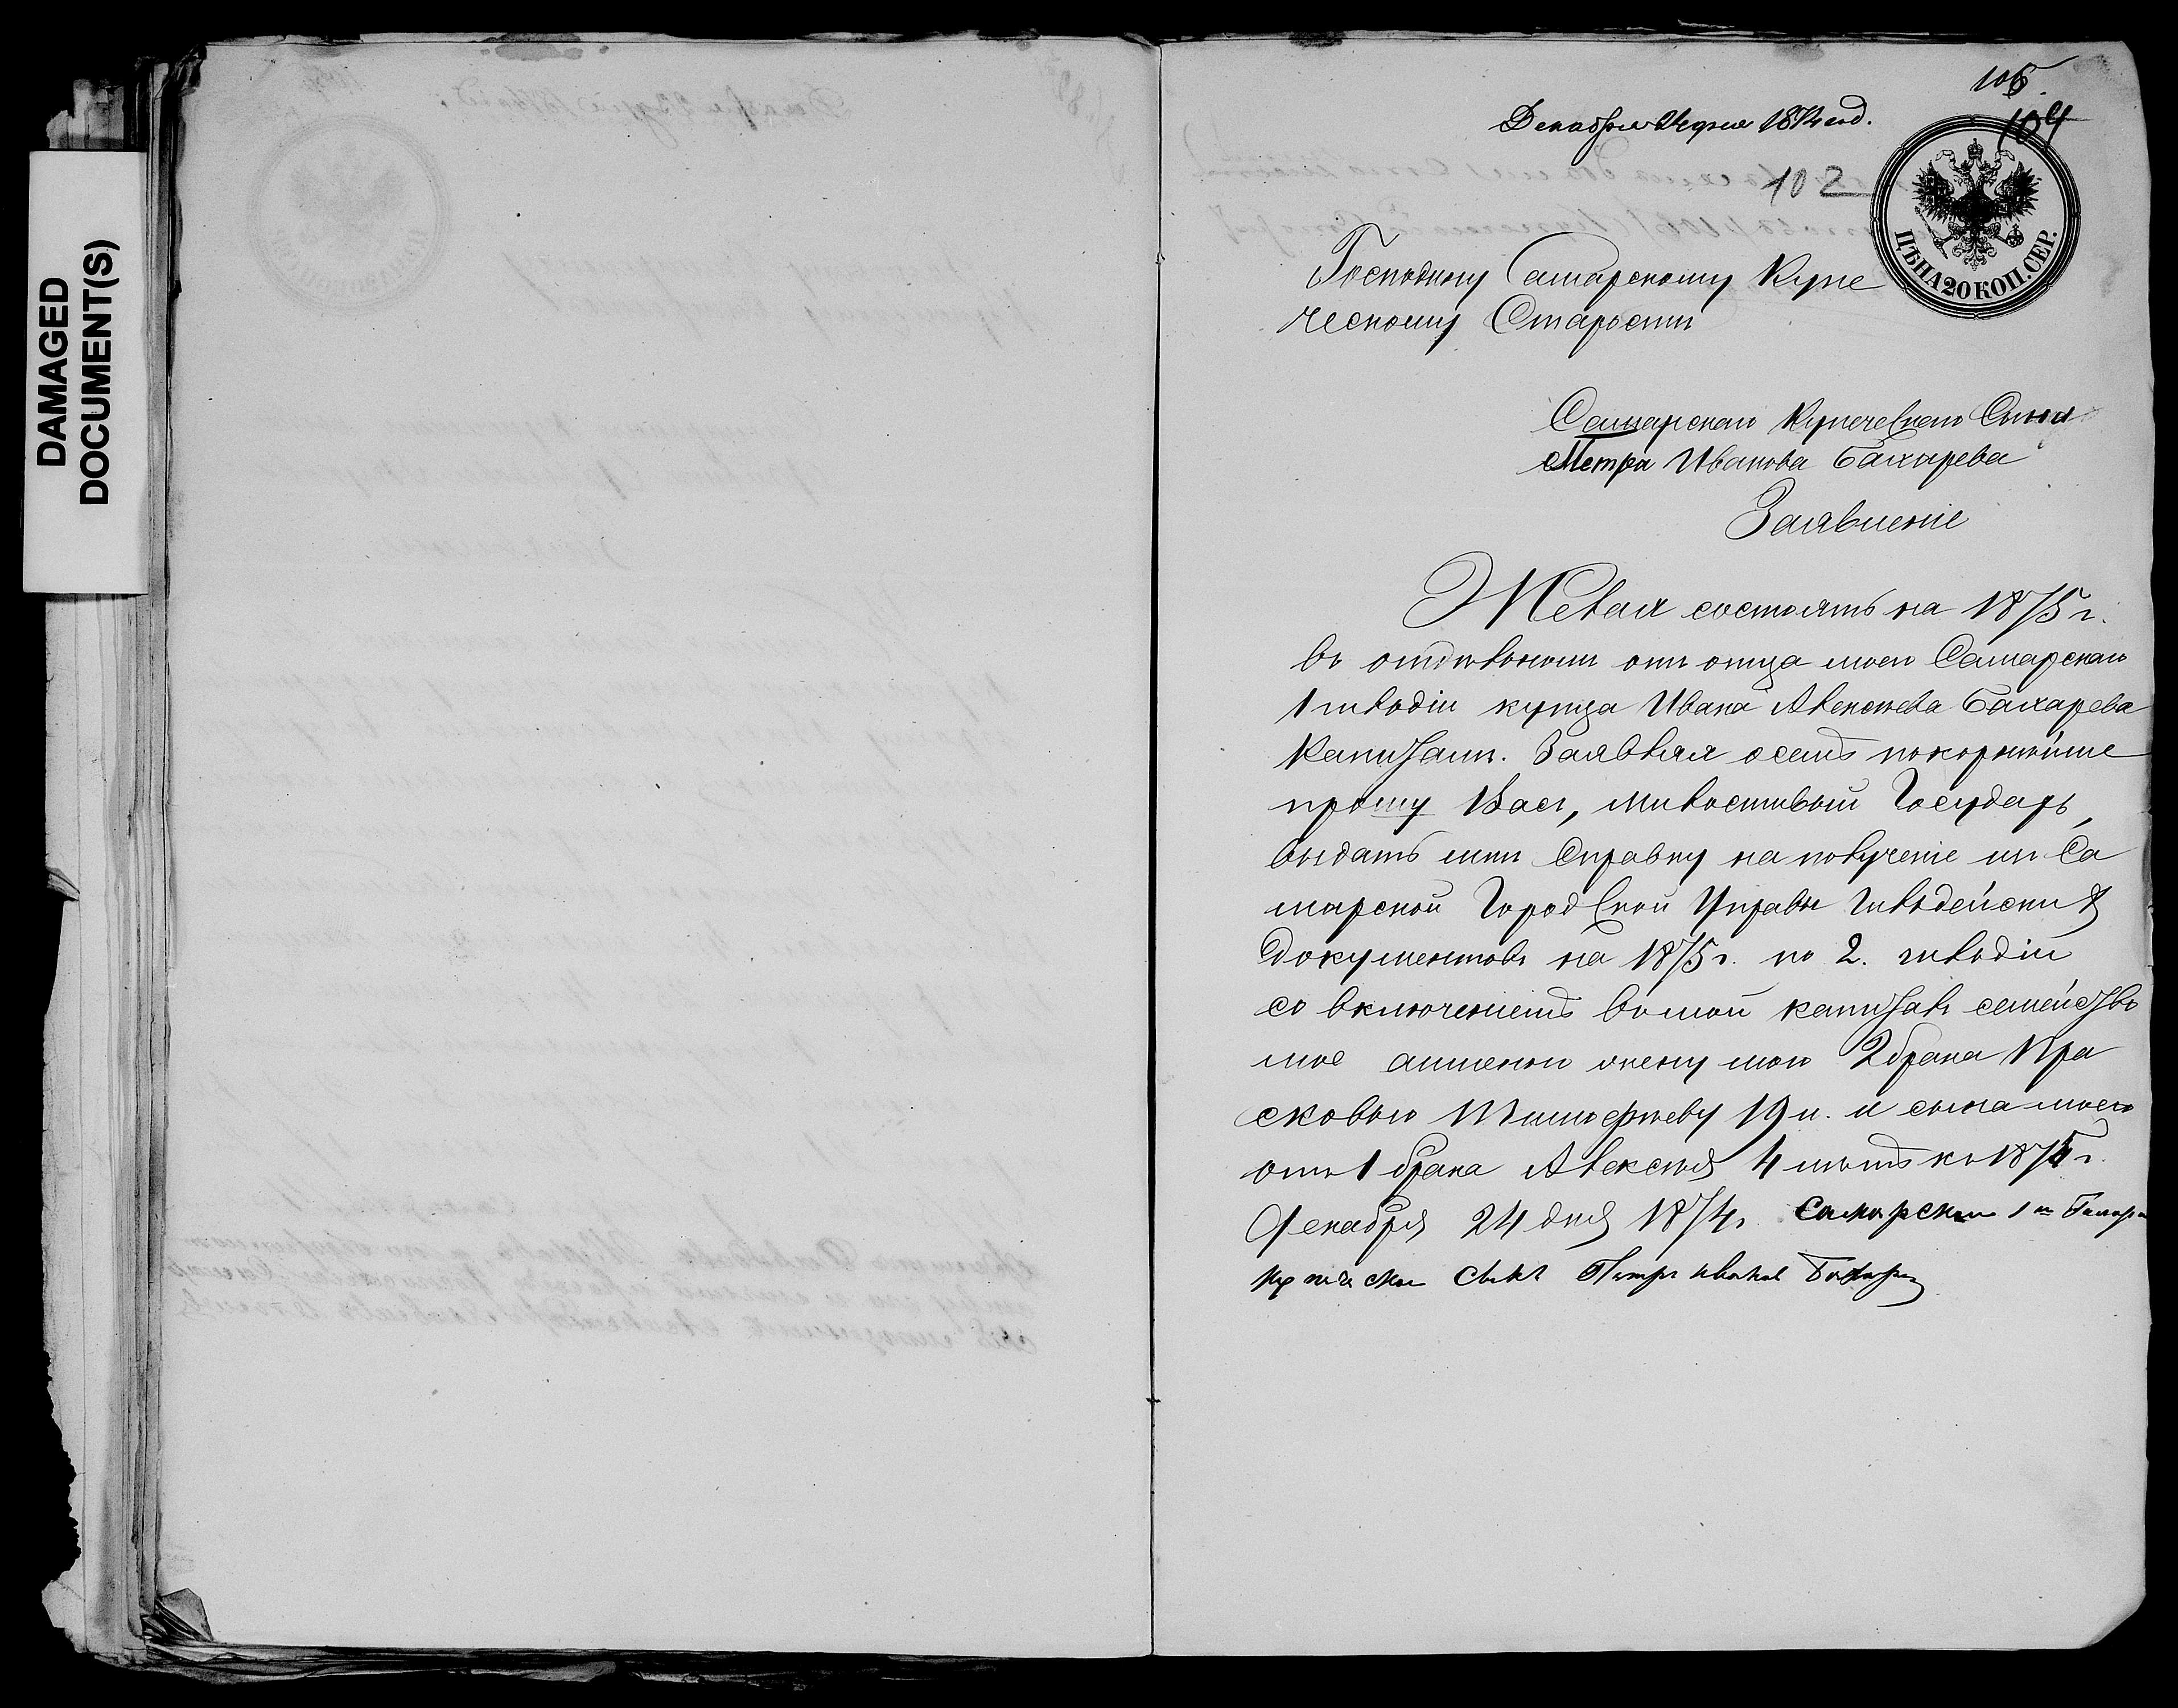 DAMAGED
DOCUMENT(S)
106
104
Декабря 24 дня 1874 год.
102
ЦѢНА 20 КОП. СЕР.
Господину Самарскому Купе
ческому Старостѣ
Самарскаго Купеческаго Сына
Петра Иванова Бахарева
Заявленіе
Желая состоять на 1875 г.
въ отдѣльномъ отъ отца моего Самарскаго
1 гильдіи купца Ивана Алексѣева Бахарева
Капиталѣ. Заявляя осемъ покорнѣйше
прошу Васъ, Милостивый Государь,
выдать мнѣ Справку на полученіе изъ Са
марской Городской Управы Гильдейскихъ
Документовъ на 1875 г. по 2. гильдіи
со включеніемъ въ мой капиталъ семейство
мое а именно жену мою 2 брака Пра
сковью Тимофѣеву 19 л. и сына моего
отъ 1 брака Алексѣя 4 лѣтъ къ 1875 г.
Декабря 24 дня 1874 г. Самарской 1й Гильди
купеческой сынъ Петръ Ивановъ Бахаревъ